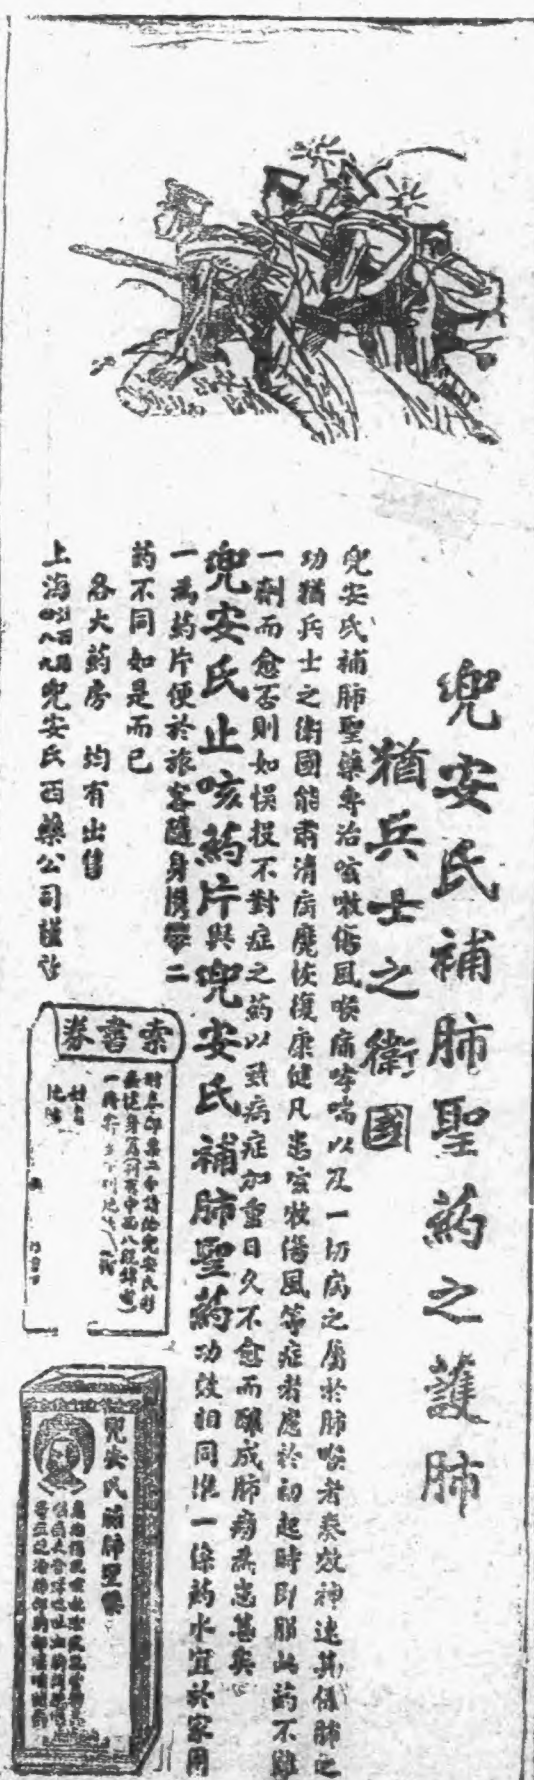 兜安氏補肺聖藥之護肺
猶兵士之衛國
兜安氏補肺聖藥專治咳嗽傷風喉痛哮喘以及一切病之屬於肺喉者奏效神速其保肺之
功猶兵士之衛國能肅清病魔恢復康健凡患咳嗽傷風等症者應於初起時即服此药不難
一劑而愈否則如悞投不對症之药以致病症加重日久不愈而釀成肺癆為患甚矣
兜安氏止咳药片與兜安氏補肺聖药功效相同惟一係药水宜於家用
一為药片便於旅客隨身携帶二
药不同如是而已
各大药房 均有出售
上海四川路八九號兜安氏西藥公司謹啓
索書券
兜安氏補肺聖藥